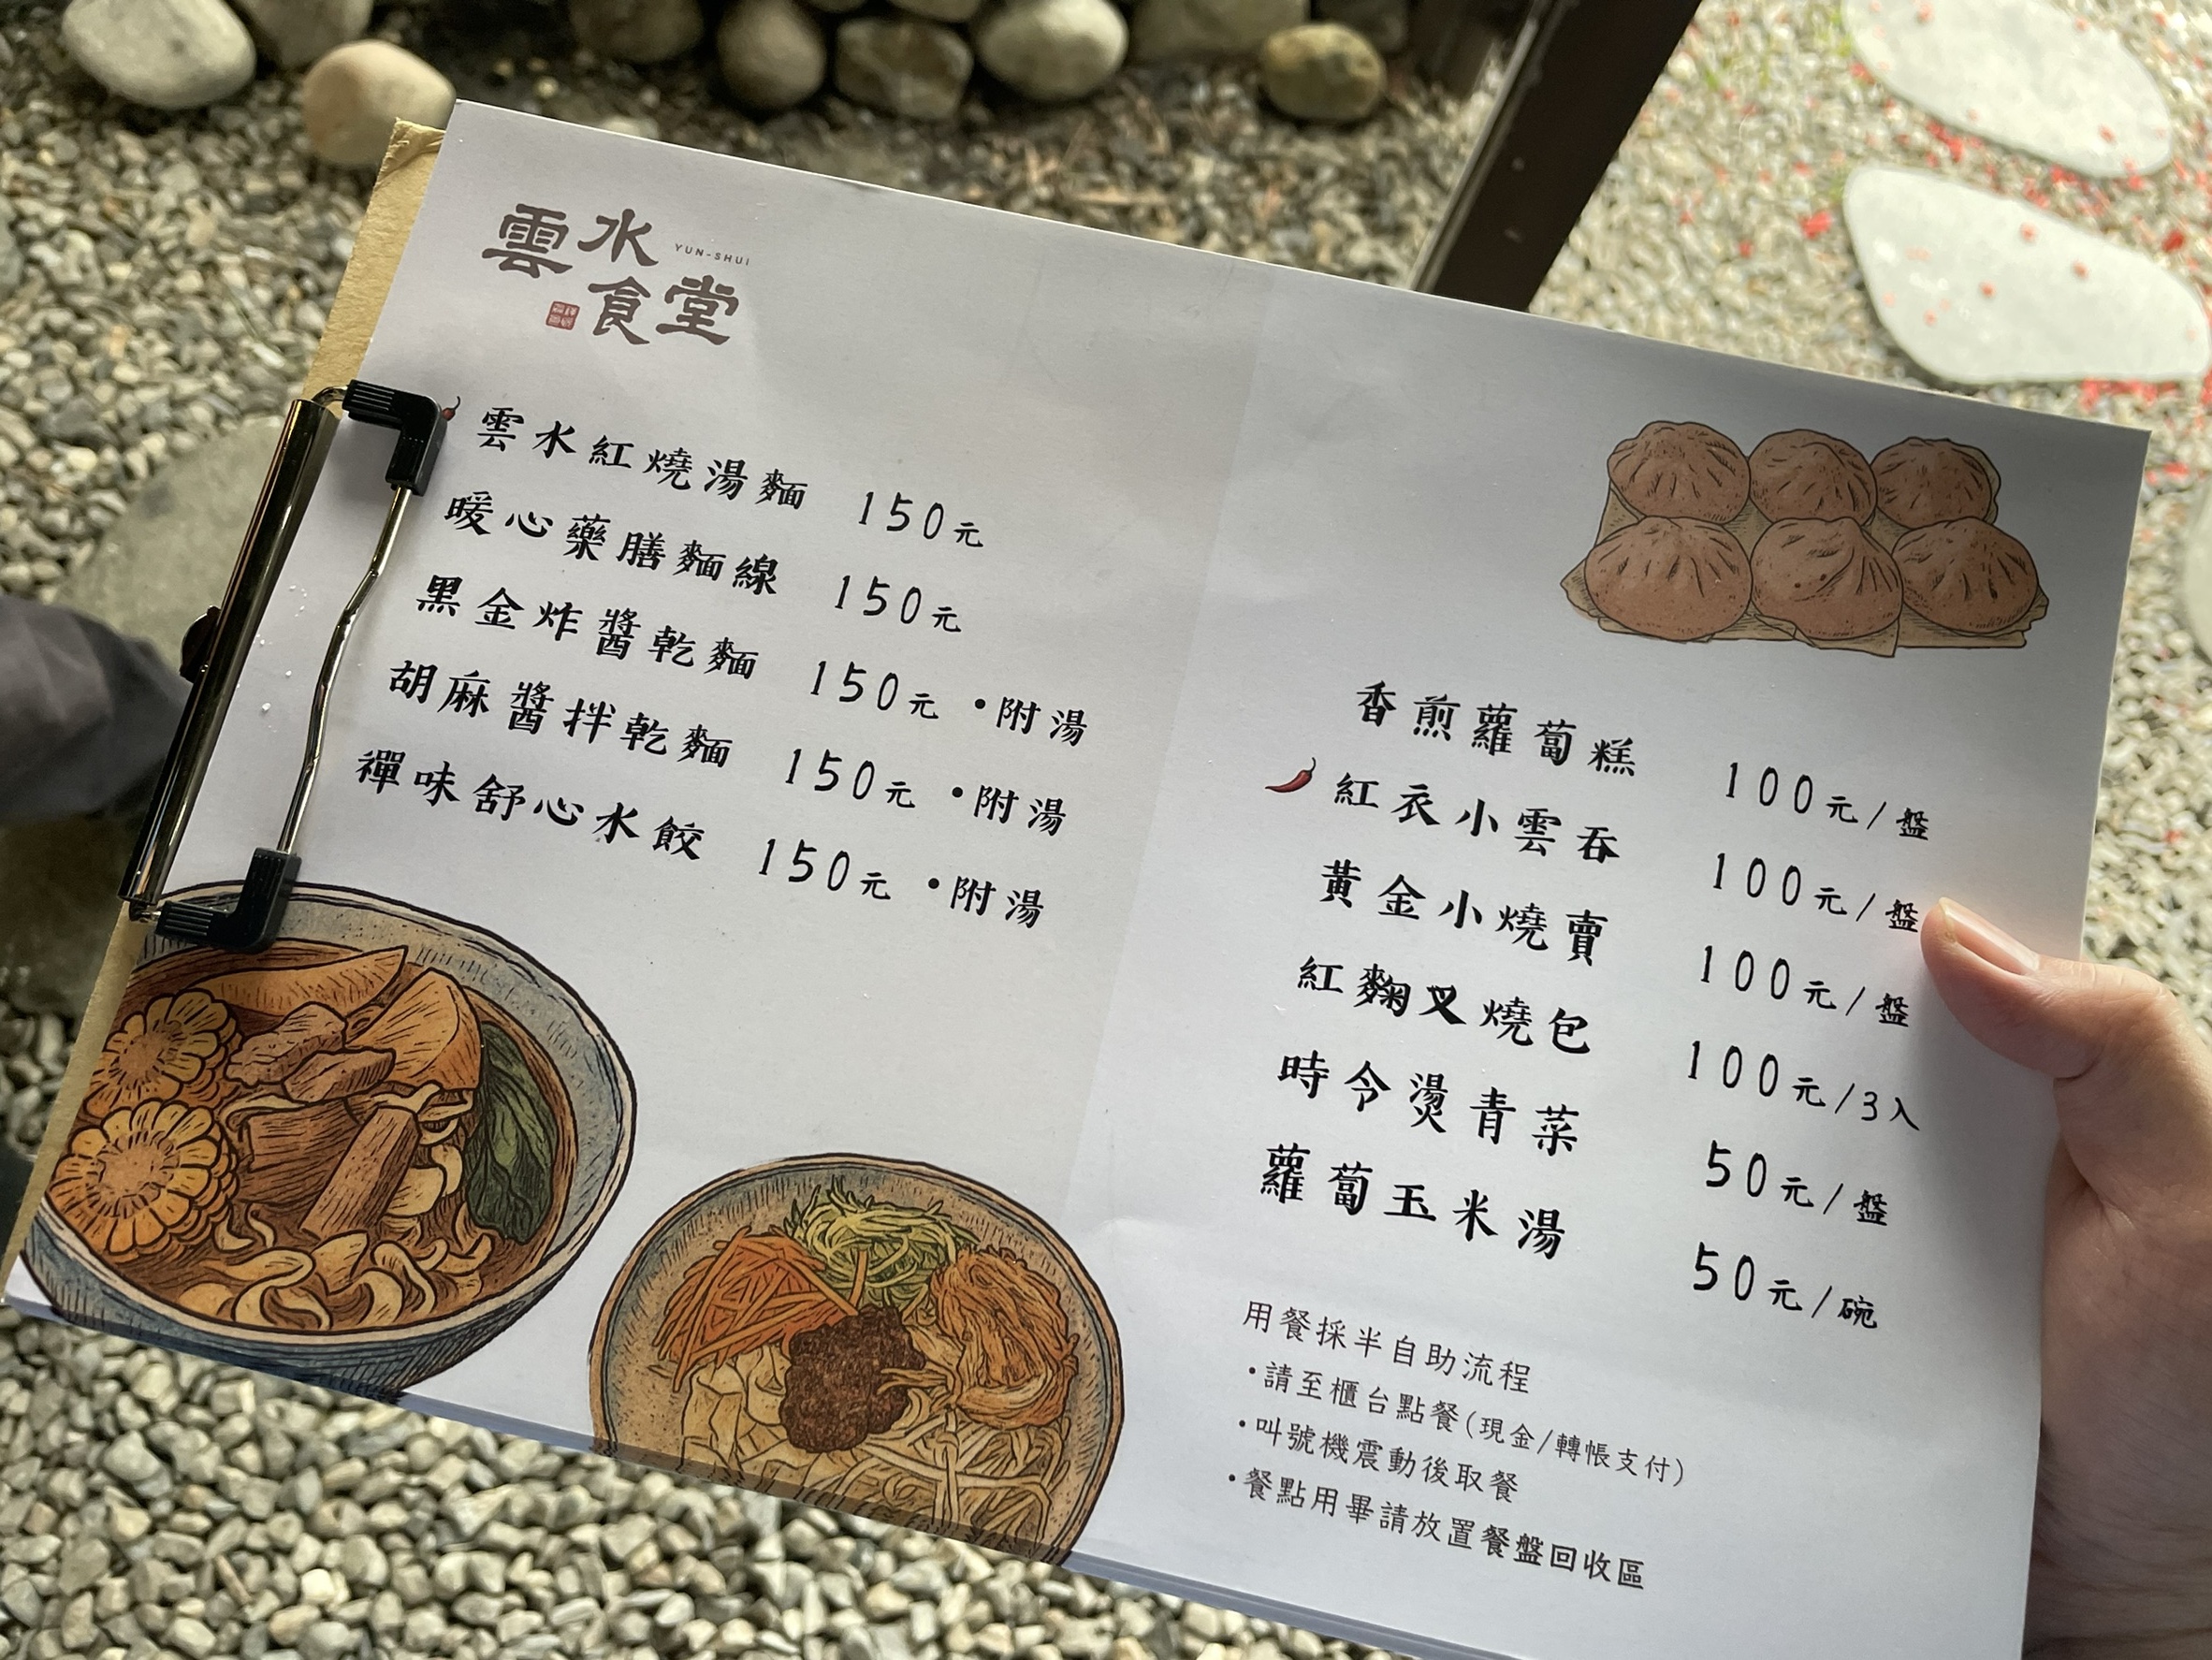 雲水
YUN-SHUI
食堂
雲水紅燒湯麵 150元
暖心藥膳麵線 150元
黑金炸醬乾麵 150元 •附湯
胡麻醬拌乾麵 150元 •附湯
禪味舒心水餃 150元 •附湯
香煎蘿蔔糕 100元/盤
紅衣小雲吞 100元/盤
黃金小燒賣 100元/盤
紅麴叉燒包 100元/3入
時令燙青菜 50元/盤
蘿蔔玉米湯 50元/碗
用餐採半自助流程
•請至櫃台點餐(現金/轉帳支付)
•叫號機震動後取餐
•餐點用畢請放置餐盤回收區